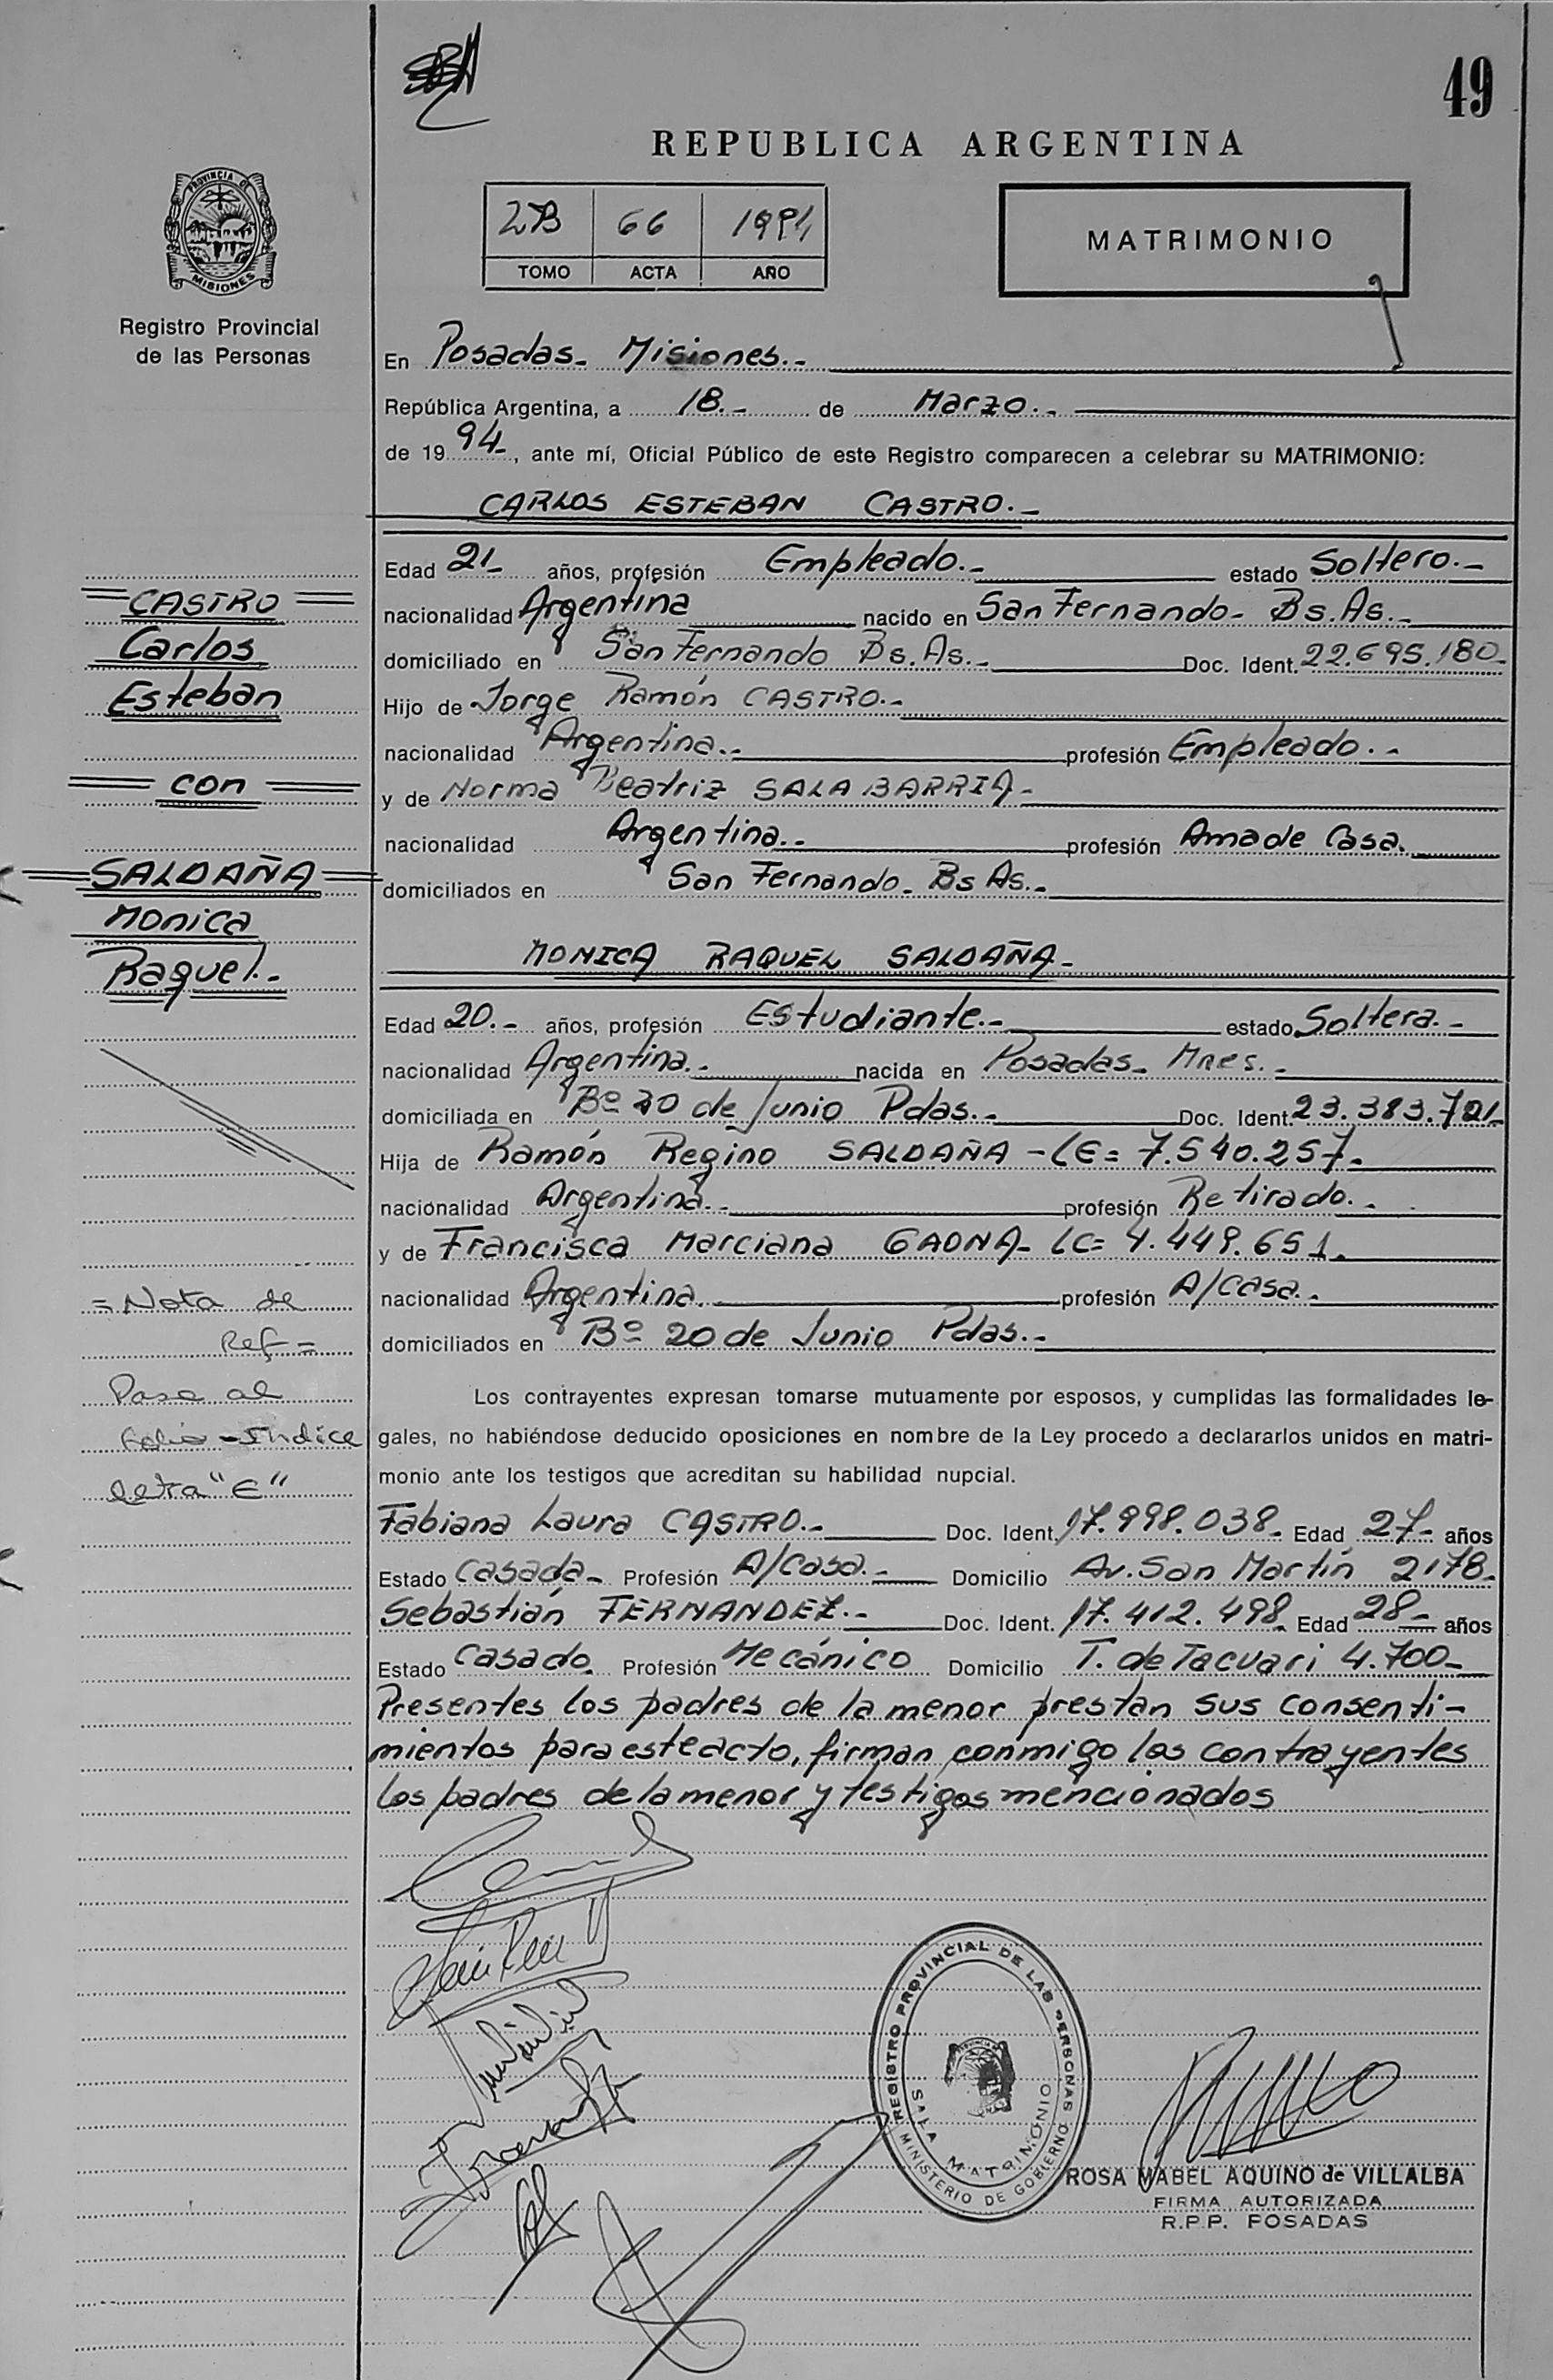 49
REPUBLICA ARGENTINA
PROVINCIA DE
MISIONES
Registro Provincial
de las Personas
2B 66 1994
TOMO ACTA AÑO
MATRIMONIO
En Posadas- Misiones.-
República Argentina, a 18.- de Marzo.-
de 1994-, ante mí, Oficial Público de este Registro comparecen a celebrar su MATRIMONIO:
CARLOS ESTEBAN CASTRO.-
Edad 21- años, profesión Empleado.- estado Soltero.-
nacionalidad Argentina nacido en San Fernando- Bs.As.-
domiciliado en San Fernando Bs.As.- Doc. Ident. 22.695.180-
Hijo de Jorge Ramón CASTRO.-
nacionalidad Argentina.- profesión Empleado.-
y de Norma Beatriz SALABARRIA-
nacionalidad Argentina.- profesión Ama de Casa.
domiciliados en San Fernando- Bs As.-
MONICA RAQUEL SALDAÑA-
Edad 20.- años, profesión Estudiante.- estado Soltera.-
nacionalidad Argentina.- nacida en Posadas- Mnes.-
domiciliada en Bº 20 de Junio Pdas.- Doc. Ident. 23.383.721-
Hija de Ramón Regino SALDAÑA - LE= 7.540.257.
nacionalidad Argentina.- profesión Retirado.-
y de Francisca Marciana GAONA- LC= 4.449.651.
nacionalidad Argentina. profesión A/Casa.-
domiciliados en Bº 20 de Junio Pdas.-
Los contrayentes expresan tomarse mutuamente por esposos, y cumplidas las formalidades le-
gales, no habiéndose deducido oposiciones en nombre de la Ley procedo a declararlos unidos en matri-
monio ante los testigos que acreditan su habilidad nupcial.
Fabiana Laura CASTRO.- Doc. Ident. 17.998.038- Edad 27- años
Estado Casada- Profesión A/Casa.- Domicilio Av. San Martín 2178-
Sebastián FERNANDEZ.- Doc. Ident. 17.412.498 Edad 28- años
Estado Casado Profesión Mecánico Domicilio T. de Tacuari 4.700-
Presentes los padres de la menor prestan sus consenti-
mientos para este acto, firman conmigo los contrayentes
los padres de la menor y testigos mencionados
CASTRO
Carlos
Esteban
con
SALDAÑA
Monica
Raquel.-
= Nota de
Ref =
Pasa al
folio - Indice
letra "E"
REGISTRO PROVINCIAL DE LAS PERSONAS
SALA MATRIMONIO
MINISTERIO DE GOBIERNO
ROSA MABEL AQUINO de VILLALBA
FIRMA AUTORIZADA
R.P.P. POSADAS